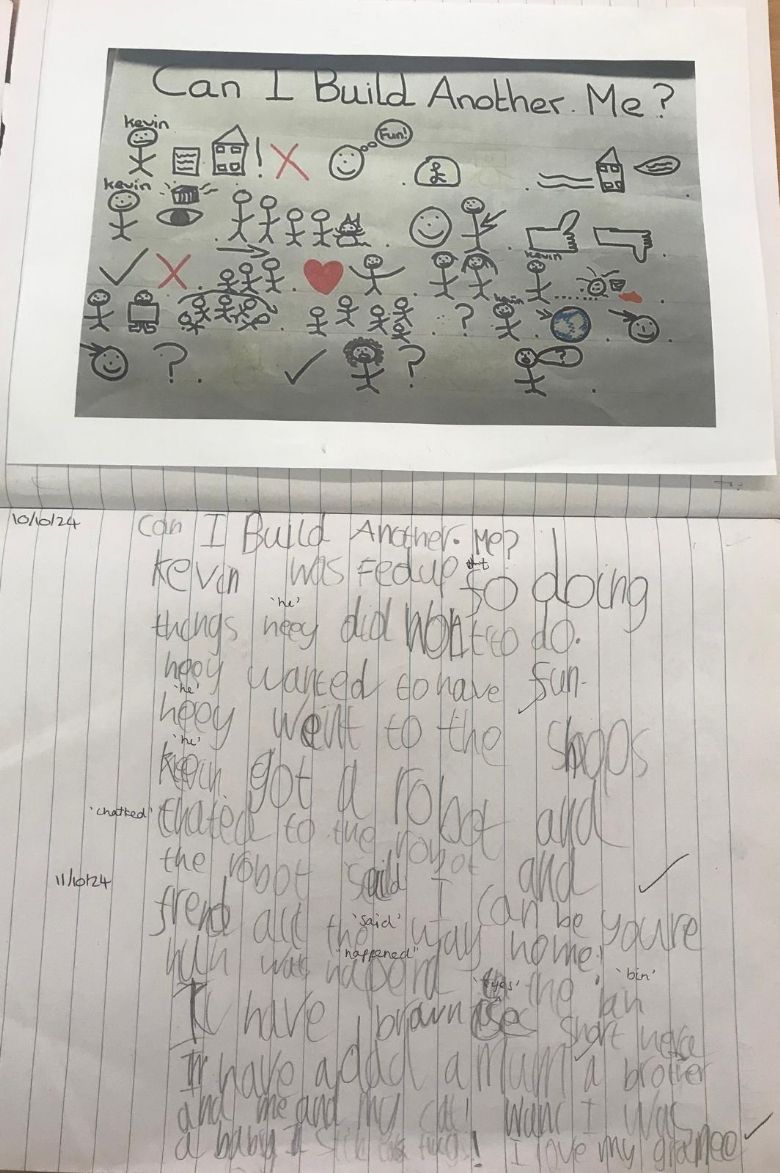 Can I Build Another Me?
kevin
Fun!
£
kevin
kevin
kevin
?
? ?
10/10/24
Can I Build Another. Me?
Kevin was fedup fo doing
'he'
things heey did wont to do.
heey wanted to have fun.
'he'
heey went to the shops
'he'
got a robot and
'chatted' thated to the robot and
the robot said I can be youre
11/10/24
frend all the way home!
'said'
'happened'
was hapend the bin
'eyes' 'bin'
I have brown short here
I have a dad a mum a brother
and me and my cat! I was
a baby I I love my